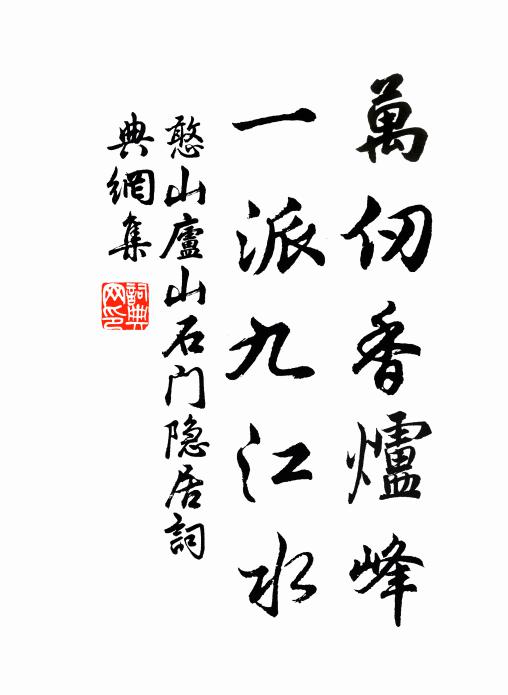 萬仞香爐峰
一派九江水
憨山廬山石门隐居詞
典網集
詞典网印